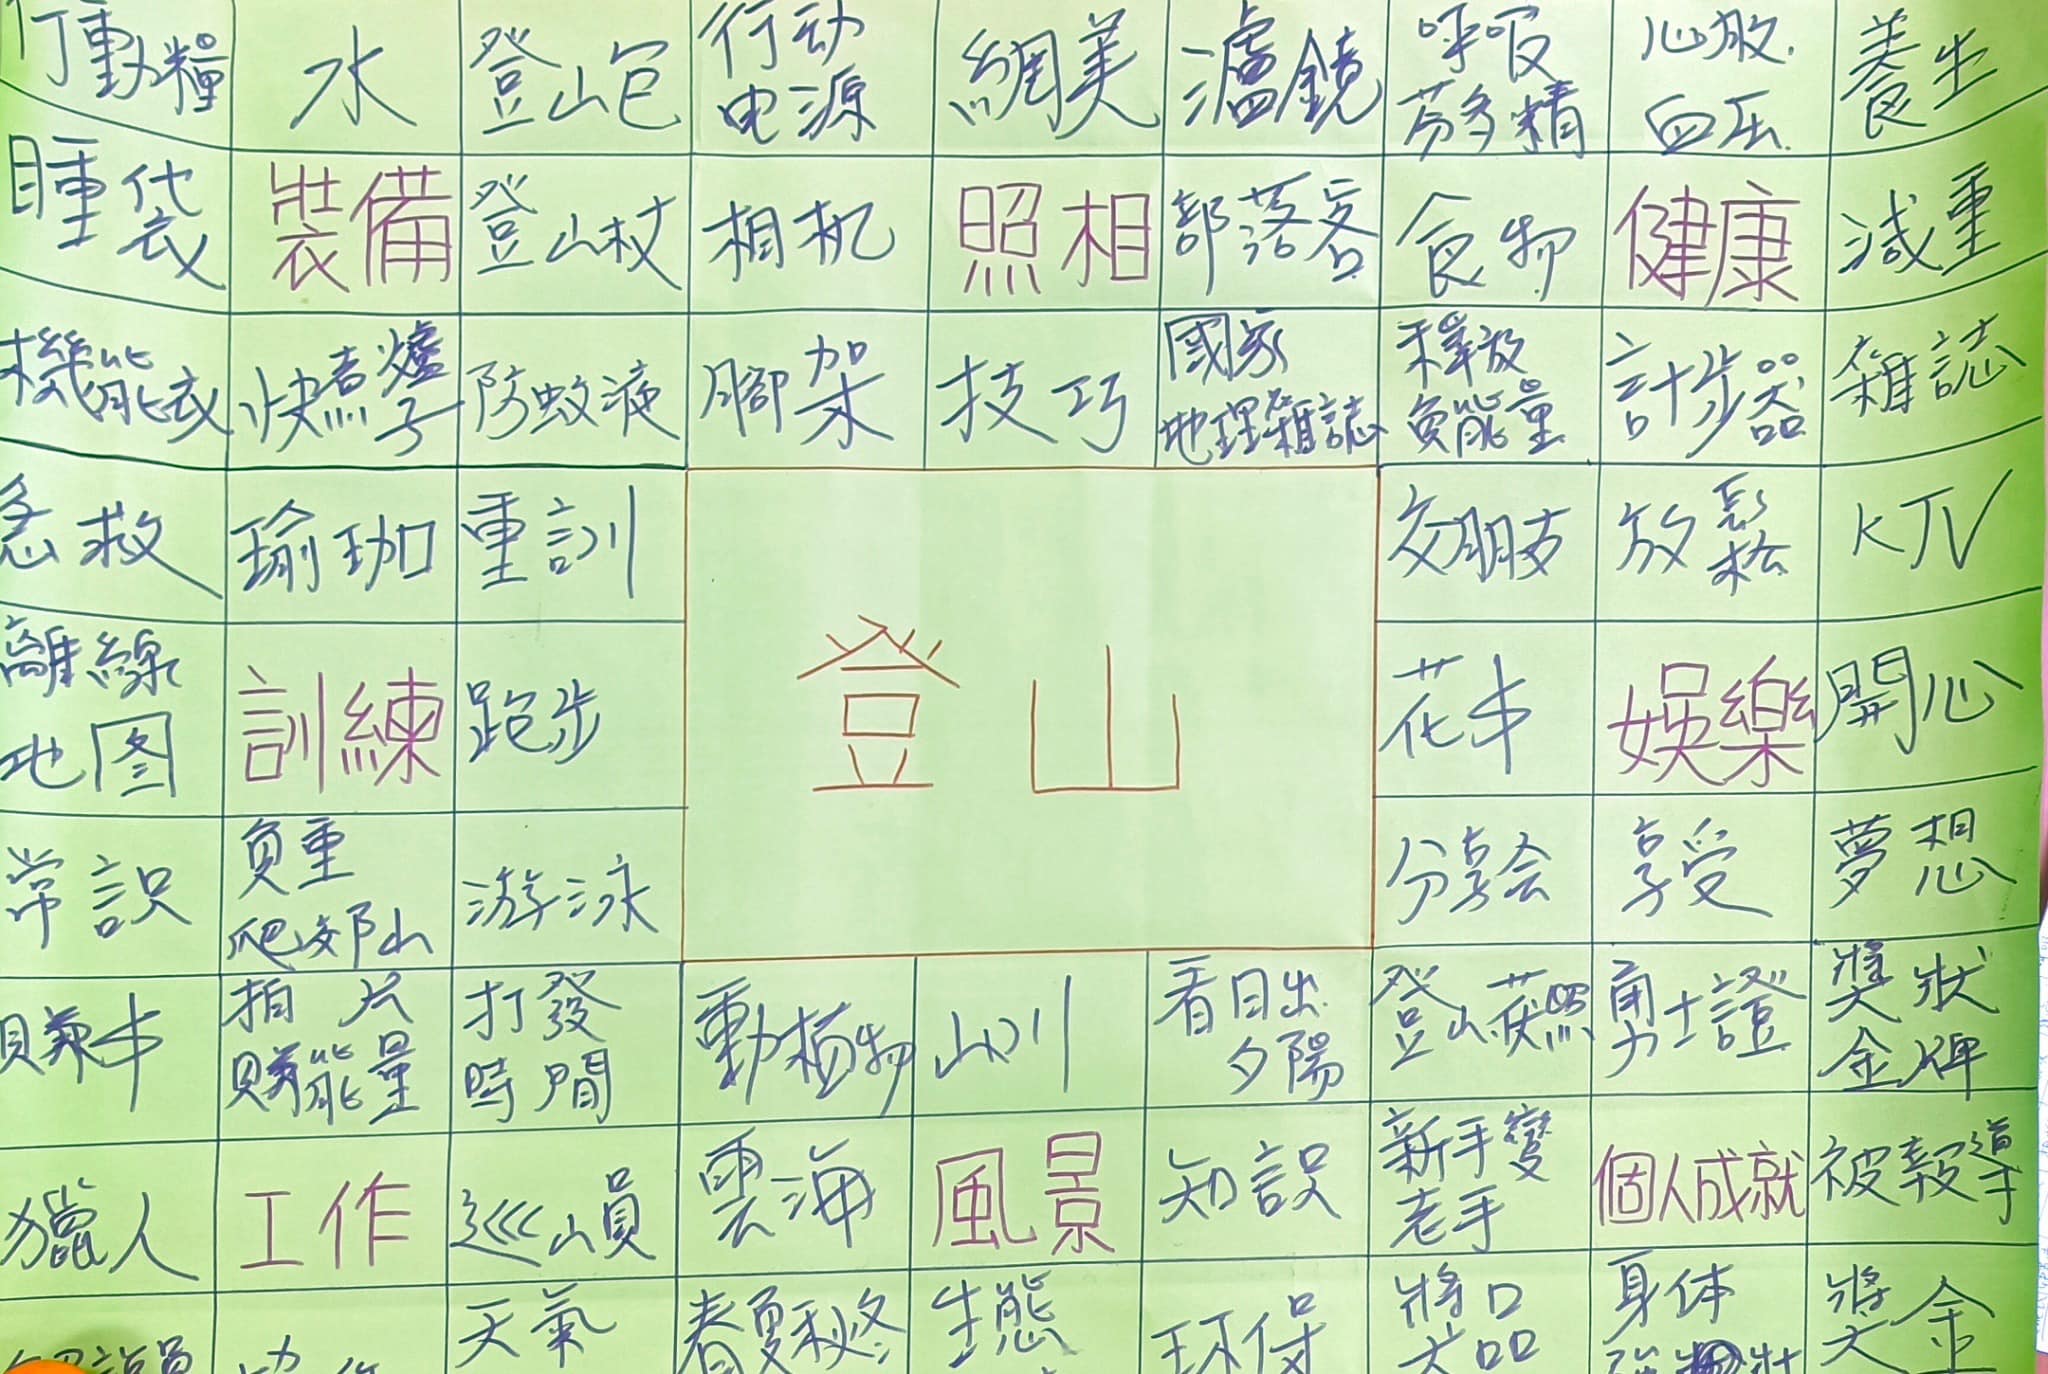 行動糧 水 登山包 行动 網美 濾鏡 呼吸 心肺 養生
电源 芬多精 血压
睡袋 裝備 登山杖 相机 照相 部落客 食物 健康 減重
機能衣 快煮爐子 防蚊液 腳架 技巧 國家 釋放 計步器 雜誌
地理雜誌 負能量
急救 瑜珈 重訓 交朋友 放鬆 KTV
離線 訓練 跑步 登山 花卡 娛樂 開心
地图
常识 負重 游泳 分享会 享受 夢想
爬郊山
賺卡 拍片 打發 動植物 山川 看日出 登山 勇士證 獎狀
賺能量 時間 夕陽 金牌
獵人 工作 巡山員 雲海 風景 知识 新手變 個人成就 被報導
老手
天氣 春夏秋冬 生態 环保 獎品 身体 獎金